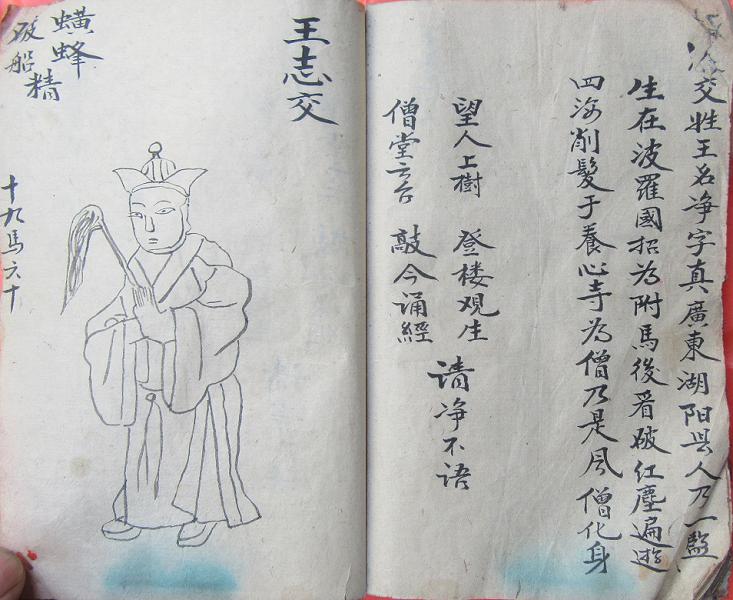 交姓王名净字真廣東湖阳县人乃一監
生在波羅國招為附馬後看破红塵遍遊
四海削髮于養心寺為僧乃是风僧化身
望人上樹 登楼观生
請净不语
僧堂云台 敲今诵經
王志交
蟥蜂
破船精
十九馬六十